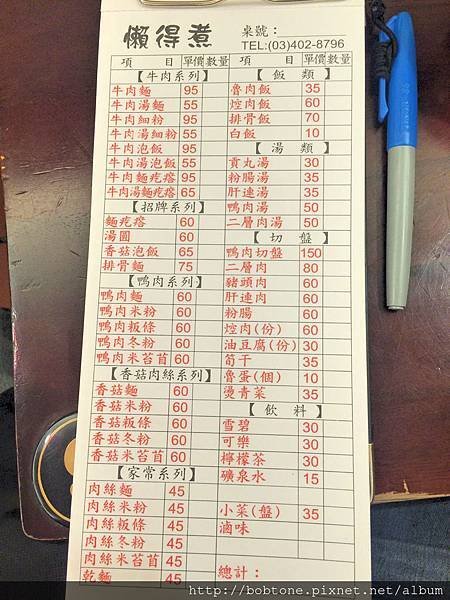 懶得煮
桌號：
TEL:(03)402-8796
項 目 單價 數量
【牛肉系列】
牛肉麵 95
牛肉湯麵 55
牛肉細粉 95
牛肉湯細粉 55
牛肉泡飯 95
牛肉湯泡飯 55
牛肉麵疙瘩 95
牛肉湯麵疙瘩 65
【招牌系列】
麵疙瘩 60
湯圓 60
香菇泡飯 65
排骨麵 75
【鴨肉系列】
鴨肉麵 60
鴨肉米粉 60
鴨肉粄條 60
鴨肉冬粉 60
鴨肉米苔苜 60
【香菇肉絲系列】
香菇麵 60
香菇米粉 60
香菇粄條 60
香菇冬粉 60
香菇米苔苜 60
【家常系列】
肉絲麵 45
肉絲米粉 45
肉絲粄條 45
肉絲冬粉 45
肉絲米苔苜 45
乾麵 45
項 目 單價 數量
【飯 類】
魯肉飯 35
焢肉飯 60
排骨飯 70
白飯 10
【湯 類】
貢丸湯 30
粉腸湯 35
肝連湯 35
鴨肉湯 50
二層肉湯 50
【切 盤】
鴨肉切盤 150
二層肉 80
豬頭肉 60
肝連肉 60
粉腸 60
焢肉(份) 60
油豆腐(份) 30
筍干 35
魯蛋(個) 10
燙青菜 35
【飲 料】
雪碧 30
可樂 30
檸檬茶 30
礦泉水 15
小菜(盤) 35
滷味
總計：
http://bobtone.pixnet.net/album